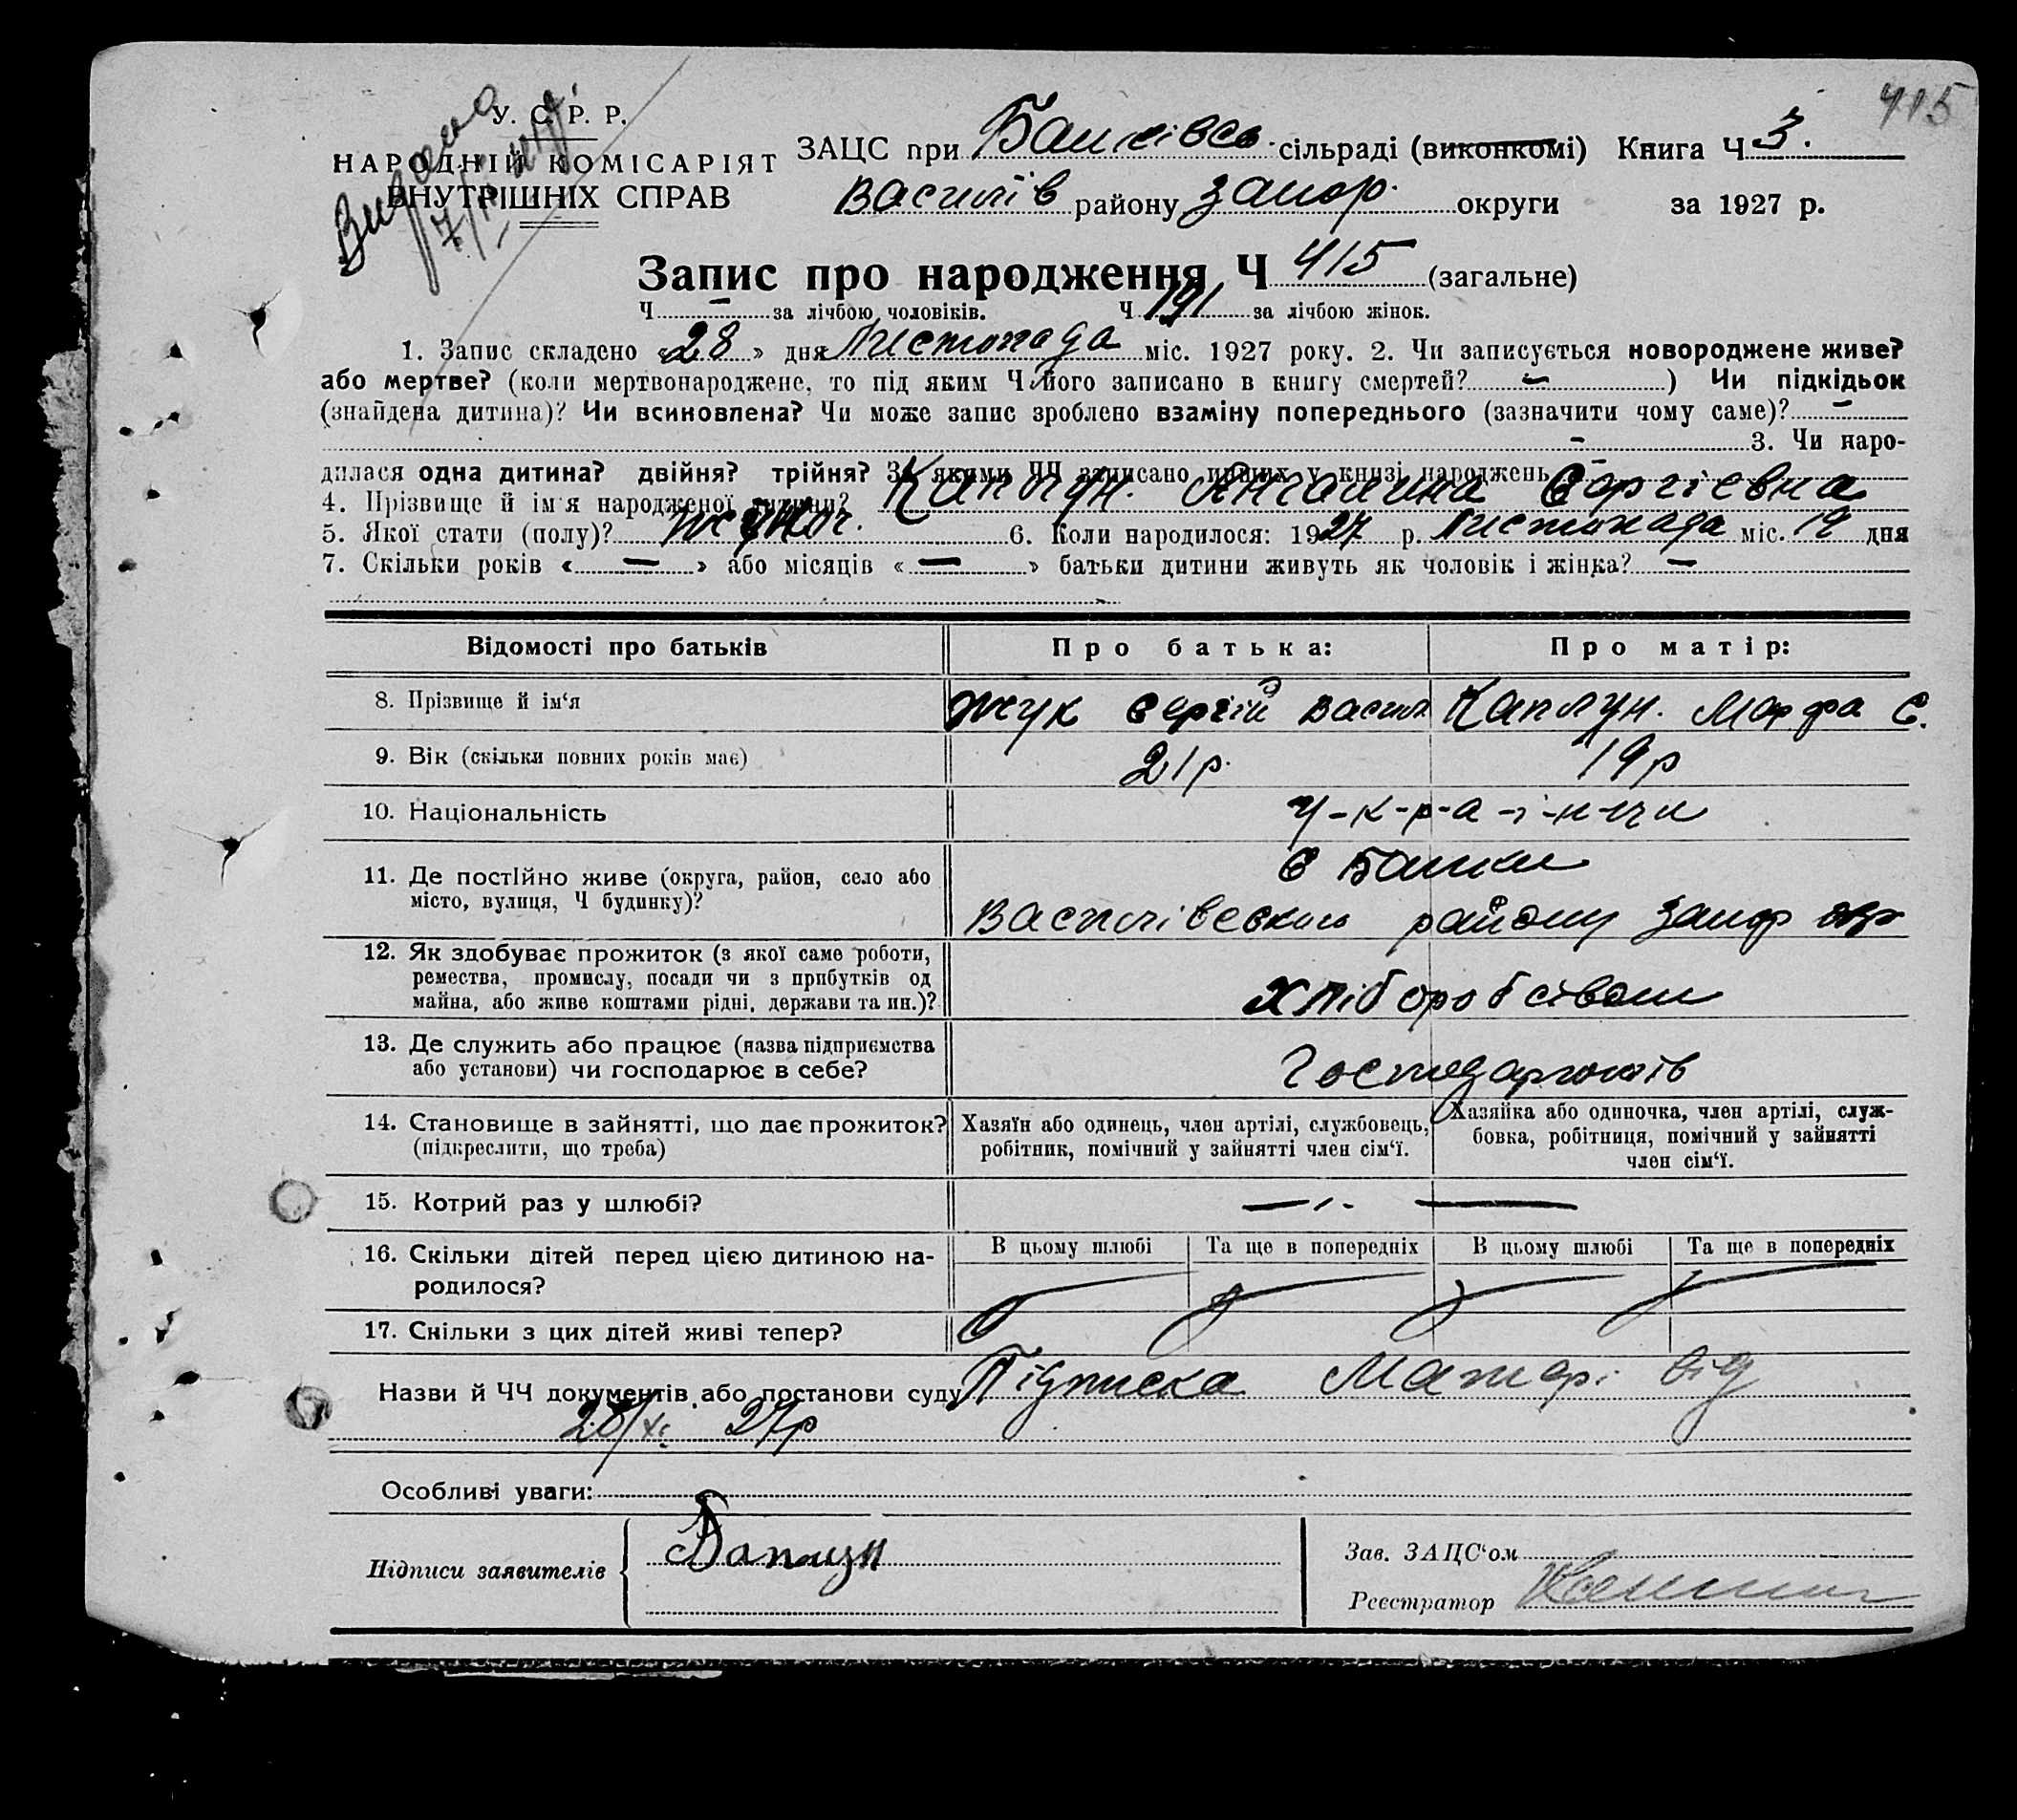 415
У. С. Р. Р.
НАРОДНІЙ КОМІСАРІЯТ
ВНУТРІШНІХ СПРАВ
Видано
ЗАЦС при Балківсь. сільраді (виконкомі) Книга Ч 3.
Василів району Запор. округи за 1927 р.
Запис про народження Ч 415 (загальне)
Ч — за лічбою чоловіків. Ч 191 за лічбою жінок.
1. Запис складено «28» дня Листопада міс. 1927 року. 2. Чи записується новороджене живе?
або мертве? (коли мертвонароджене, то під яким Ч його записано в книгу смертей? — ) Чи підкідьок
(знайдена дитина)? Чи всиновлена? Чи може запис зроблено взаміну попереднього (зазначити чому саме)? —
— 3. Чи наро-
дилася одна дитина? двійня? трійня? За якими ЧЧ записано инших у книзі народжень —
4. Прізвище й ім'я народженої дитини? Каплун. Ангелина Сергіевна
5. Якої стати (полу)? жіноч. 6. Коли народилося: 1927 р. Листопада міс. 19 дня
7. Скільки років « — » або місяців « — » батьки дитини живуть як чоловік і жінка? —
Відомості про батьків Про батька: Про матір:
8. Прізвище й ім'я Жук Сергій Васил Каплун. Марфа Є.
9. Вік (скільки повних років має) 21 р. 19 р
10. Національність У-к-р-а-ї-н-ци
11. Де постійно живе (округа, район, село або
місто, вулиця, Ч будинку)? С Балки
Василівського району Запор окр
12. Як здобуває прожиток (з якої саме роботи,
ремества, промислу, посади чи з прибутків од
майна, або живе коштами рідні, держави та ин.)? Хліборобством
13. Де служить або працює (назва підприємства
або установи) чи господарює в себе? Господарюють
14. Становище в зайнятті, що дає прожиток?
(підкреслити, що треба)
Хазяїн або одинець, член артілі, службовець,
робітник, помічний у зайнятті член сім'ї.
Хазяйка або одиночка, член артілі, служ-
бовка, робітниця, помічний у зайнятті
член сім'ї.
15. Котрий раз у шлюбі? —
16. Скільки дітей перед цією дитиною на-
родилося?
В цьому шлюбі Та ще в попередніх В цьому шлюбі Та ще в попередніх
17. Скільки з цих дітей живі тепер?
Назви й ЧЧ документів або постанови суду Підписка Матері від
28/XI 27р
Особливі уваги:
Підписи заявителів Каплун
Зав. ЗАЦС'ом
Реєстратор